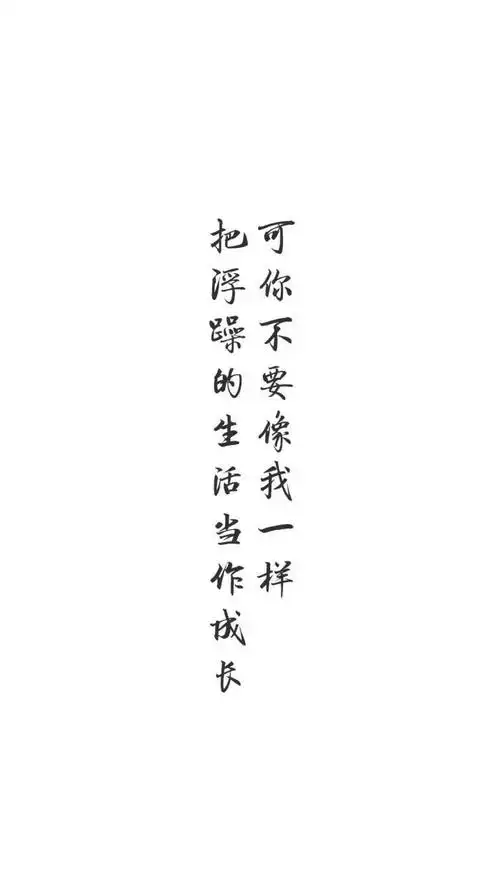 可你不要像我一样
把浮躁的生活当作成长